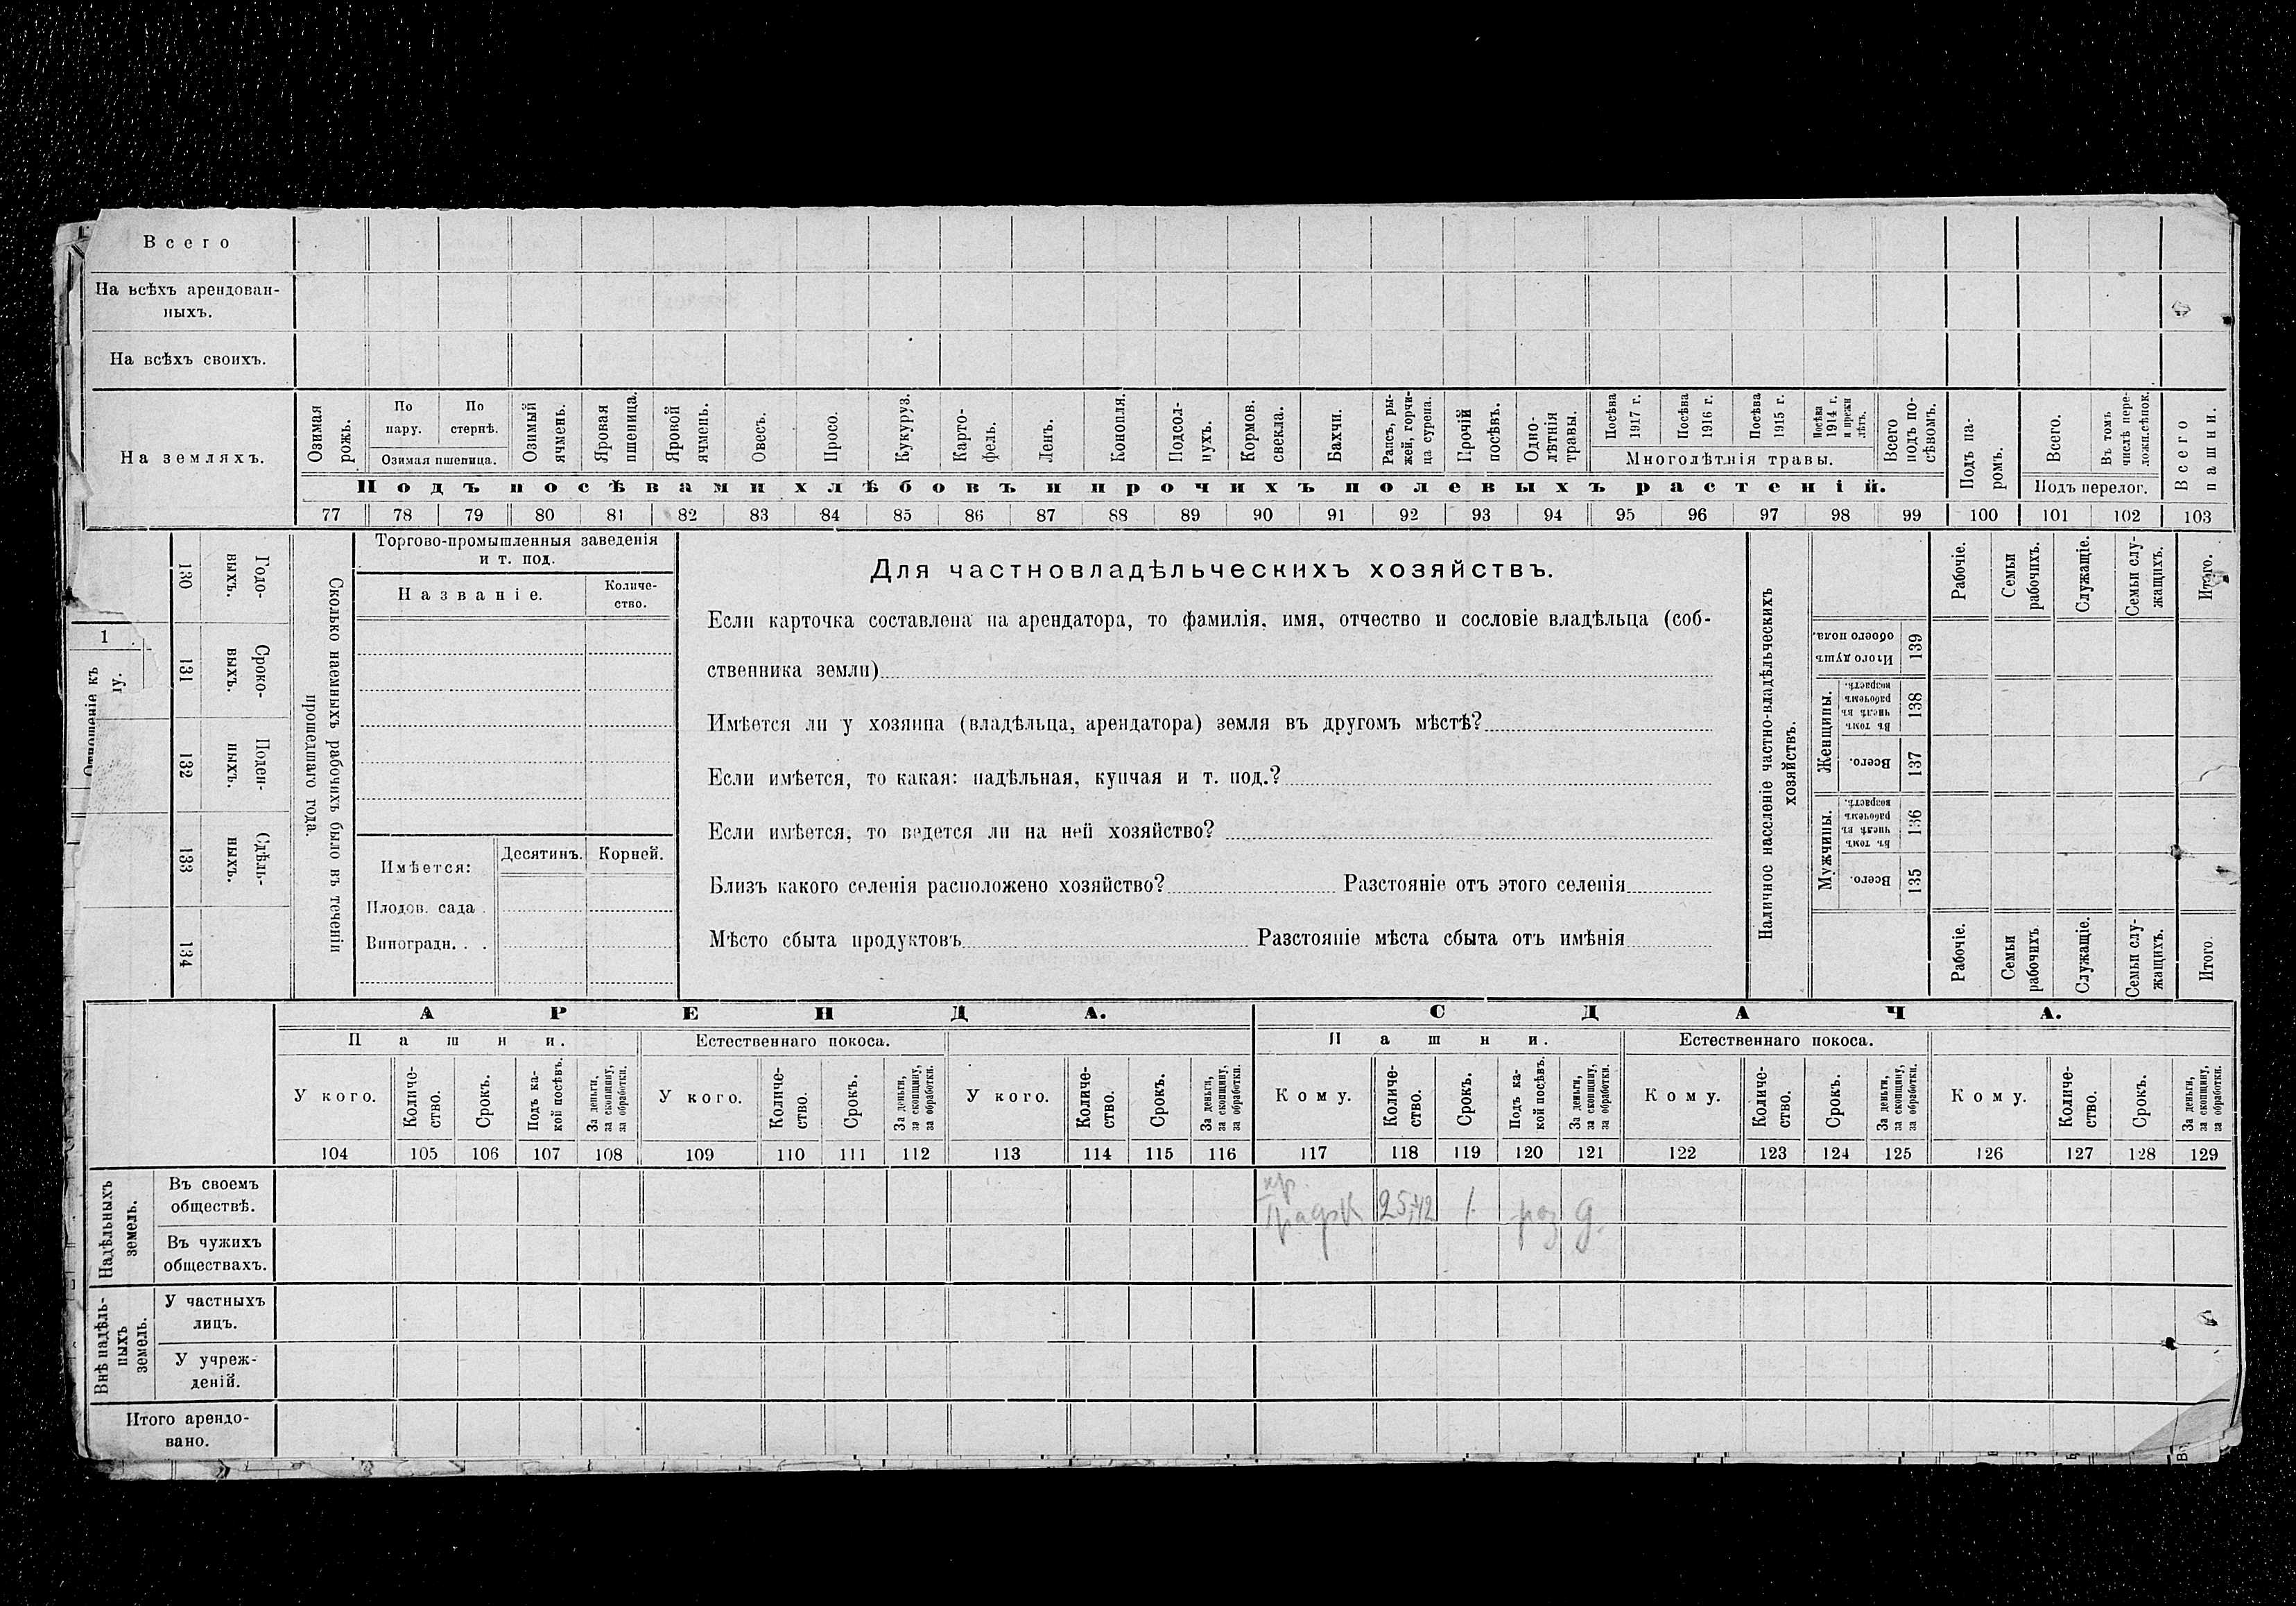 Всего
На всѣхъ арендован-
ныхъ.
На всѣхъ своихъ.
На земляхъ.
Озимая рожь.
По пару.
По стернѣ.
Озимая пшеница.
Озимый ячмень.
Яровая пшеница.
Яровой ячмень.
Овесъ.
Просо.
Кукуруз.
Карто-
фель.
Ленъ.
Конопля.
Подсол-
нухъ.
Кормов. свекла.
Бахчи.
Рапсъ, ры-
жей, горчи-
ца сурепа.
Прочій посѣвъ.
Одно-
лѣтнія травы.
Посѣва 1917 г.
Посѣва 1916 г.
Посѣва 1915 г.
Посѣва 1914 г. и прежн лѣтъ.
Многолѣтнія травы.
Всего подъ по-
сѣвомъ.
Подъ па-
ромъ.
Всего.
Въ томъ числѣ пере-
ложн.сѣнок.
Подъ перелог.
Всего пашни.
Подъ посѣвами хлѣбовъ и прочихъ полевыхъ растеній.
77 78 79 80 81 82 83 84 85 86 87 88 89 90 91 92 93 94 95 96 97 98 99 100 101 102 103
1
Отношеніе къ
130 Годо-
выхъ.
131 Сроко-
выхъ.
132 Поден-
ныхъ.
133 Сдѣль-
ныхъ.
134
Сколько наемныхъ рабочихъ было въ теченіи
прошедшаго года.
Торгово-промышленныя заведенія
и т. под.
Названіе.
Количе-
ство.
Имѣется:
Десятинъ.
Корней.
Плодов. сада .
Виноградн. . .
Для частновладѣльческихъ хозяйствъ.
Если карточка составлена на арендатора, то фамилія, имя, отчество и сословіе владѣльца (соб-
ственника земли)
Имѣется ли у хозяина (владѣльца, арендатора) земля въ другомъ мѣстѣ?
Если имѣется, то какая: надѣльная, купчая и т. под.?
Если имѣется, то ведется ли на ней хозяйство?
Близъ какого селенія расположено хозяйство? Разстояніе отъ этого селенія
Мѣсто сбыта продуктовъ Разстояніе мѣста сбыта отъ имѣнія
Наличное населеніе частно-владѣльческихъ
хозяйствъ.
Рабочіе.
Семьи рабочихъ.
Служащіе.
Семьи слу-
жащихъ.
Итого.
Итого душъ обоего пола. 139
Женщины.
Въ томъ числѣ въ рабочемъ возрастѣ. 138
Всего. 137
Мужчины.
Въ томъ числѣ въ рабочемъ возрастѣ. 136
Всего. 135
Рабочіе.
Семьи рабочихъ.
Служащіе.
Семьи слу-
жащихъ.
Итого.
АРЕНДА.
СДАЧА.
Пашни.
Естественнаго покоса.
Пашни.
Естественнаго покоса.
У кого.
Количе-
ство.
Срокъ.
Подъ ка-
кой посѣвъ.
За деньги,
за скопщину,
за обработки.
У кого.
Количе-
ство.
Срокъ.
За деньги,
за скопщину,
за обработки.
У кого.
Количе-
ство.
Срокъ.
За деньги,
за скопщину,
за обработки.
Кому.
Количе-
ство.
Срокъ.
Подъ ка-
кой посѣвъ.
За деньги,
за скопщину,
за обработки.
Кому.
Количе-
ство.
Срокъ.
За деньги,
за скопщину,
за обработки.
Кому.
Количе-
ство.
Срокъ.
За деньги,
за скопщину,
за обработки.
104 105 106 107 108 109 110 111 112 113 114 115 116 117 118 119 120 121 122 123 124 125 126 127 128 129
Надѣльныхъ
земель.
Въ своемъ
обществѣ.
кр.
25,42 1. роз д.
Въ чужихъ
обществахъ.
Внѣ надѣль-
ныхъ
земель.
У частныхъ
лицъ.
У учреж-
деній.
Итого арендо-
вано.